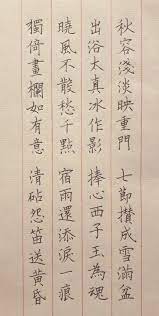 秋容淺淡映重門 七節攢成雪滿盆
出浴太真冰作影 捧心西子玉為魂
曉風不散愁千點 宿雨還添淚一痕
獨倚畫欄如有意 清砧怨笛送黃昏